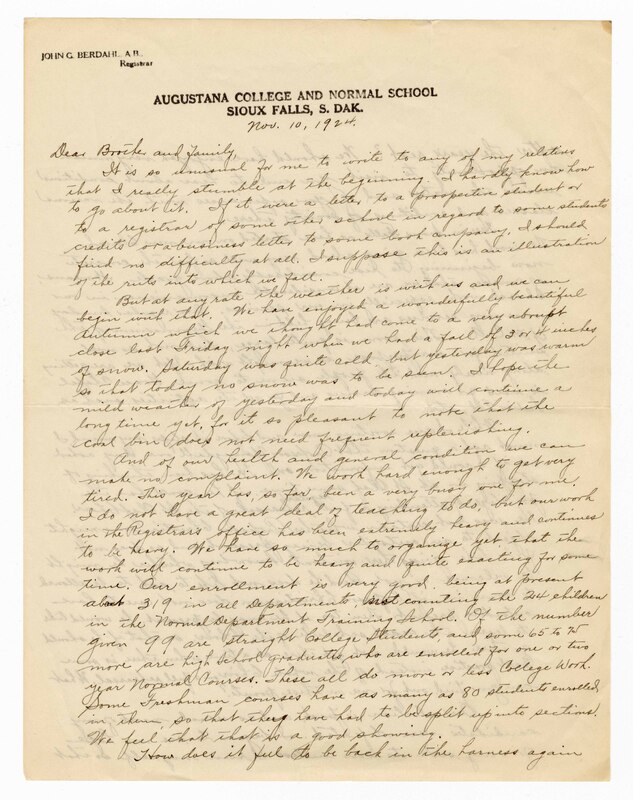 JOHN G. BERDAHL, A.B.,
Registrar
AUGUSTANA COLLEGE AND NORMAL SCHOOL
SIOUX FALLS, S. DAK.
Nov. 10, 1924.
Dear Brother and Family,
It is so unusual for me to write to any of my relatives
that I really stumble at the beginning. I hardly know how
to go about it. If it were a letter to a prospective student or
to a registrar of some other school in regard to some students
credits or a business letter to some book company, I should
find no difficulty at all. I suppose this is an illustration
of the ruts into which we fall.
But at any rate the weather is with us and we can
begin with that. We have enjoyed a wonderfully beautiful
Autumn which we thought had come to a very abrupt
close last Friday night when we had a fall of 3 or 4 inches
of snow. Saturday was quite cold, but yesterday was warm
so that today no snow was to be seen. I hope the
mild weather of yesterday and today will continue a
long time yet, for it so pleasant to note that the
coal bin does not need frequent replenishing.
And of our health and general condition we can
make no complaint. We work hard enough to get very
tired. This year has, so far, been a very busy one for me.
I do not have a great deal of teaching to do, but our work
in the Registrars office has been extremely heavy and continues
to be heavy. We have so much to organize yet that the
work will continue to be heavy and quite exacting for some
time. Our enrollment is very good, being at present
about 319 in all Departments, not counting the 24 children
in the Normal Department Training School. Of the number
given 99 are straight College Students, and some 65 to 75
more are high School graduates who are enrolled for one or two
year Normal Courses. These all do more or less College Work.
Some Freshman courses have as many as 80 students enrolled
in them so that they have had to be split up into sections.
We feel that that is a good showing.
How does it feel to be back in the harness again